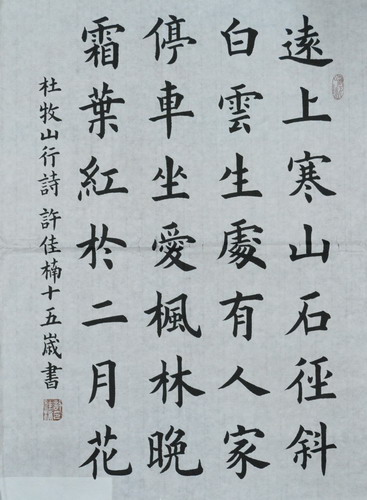 遠上寒山石徑斜
白雲生處有人家
停車坐愛楓林晚
霜葉紅於二月花
杜牧山行詩 許佳楠十五歲書